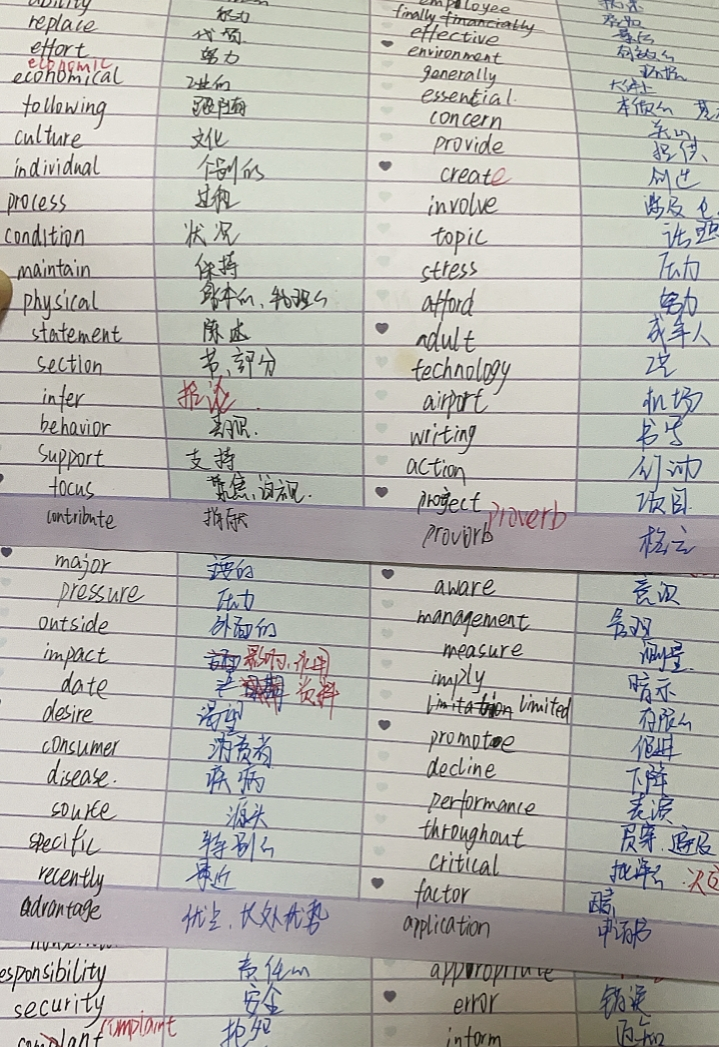 replace
effort 努力
economic
economical
following
culture 文化
individual 个别的
process 过程
condition 状况
maintain 保持
physical 身体的、物理的
statement 陈述
section 节、部分
infer 推论
behavior 表现.
support 支持
focus 聚焦,
contribute
major
pressure 压力
outside 外面的
impact 影响、作用
date 资料
desire 渴望
consumer 消费者
disease. 疾病
source 源头
specific 特别的
recently 最近
advantage 优点、长处优势
esponsibility 责任
security 安全
complaint
employee
finally financially
effective
environment 环境
generally 大体上
essential.
concern
provide 提供
create 创造
involve 涉及
topic 话题
stress 压力
afford 努力
adult 成年人
technology
airport 机场
writing 书写
action 行动
project 项目
proverb
provorb
aware 意识
management 管理
measure 测量
imply 暗示
limitation limited 有限的
promote 促进
decline 下降
performance 表演
throughout 贯穿、遍及
critical
factor
application 申请书
appropriate
error 错误
inform